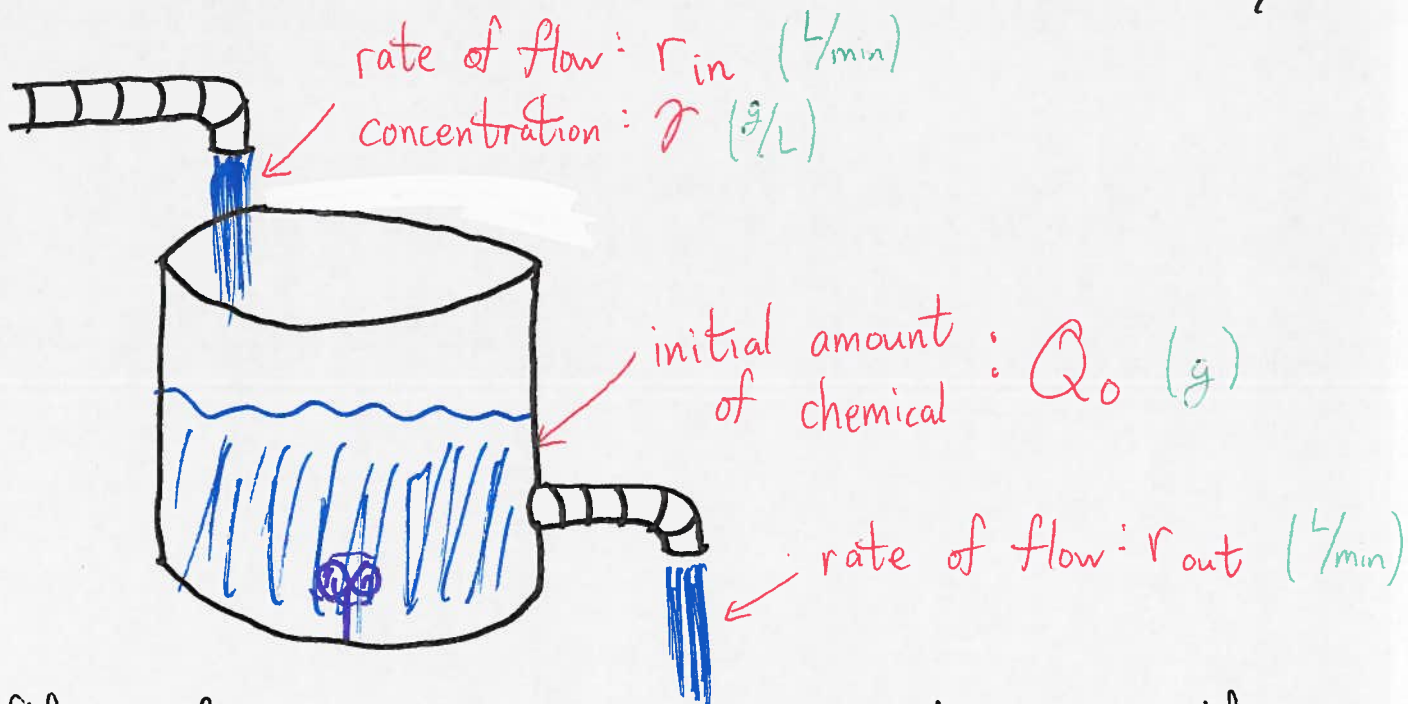 rate of flow: r in (L/min)
concentration: γ (g/L)
initial amount
of chemical : Q₀ (g)
rate of flow: r out (L/min)